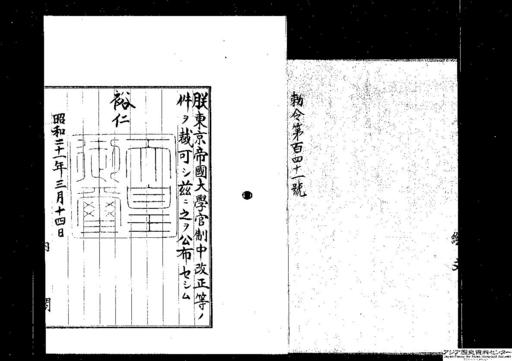 朕東京帝國大學官制中改正等ノ
件ヲ裁可シ茲ニ之ヲ公布セシム
裕仁
天皇御璽
昭和二十一年三月十四日
內閣
勅令第百四十一號
アジア歴史資料センター